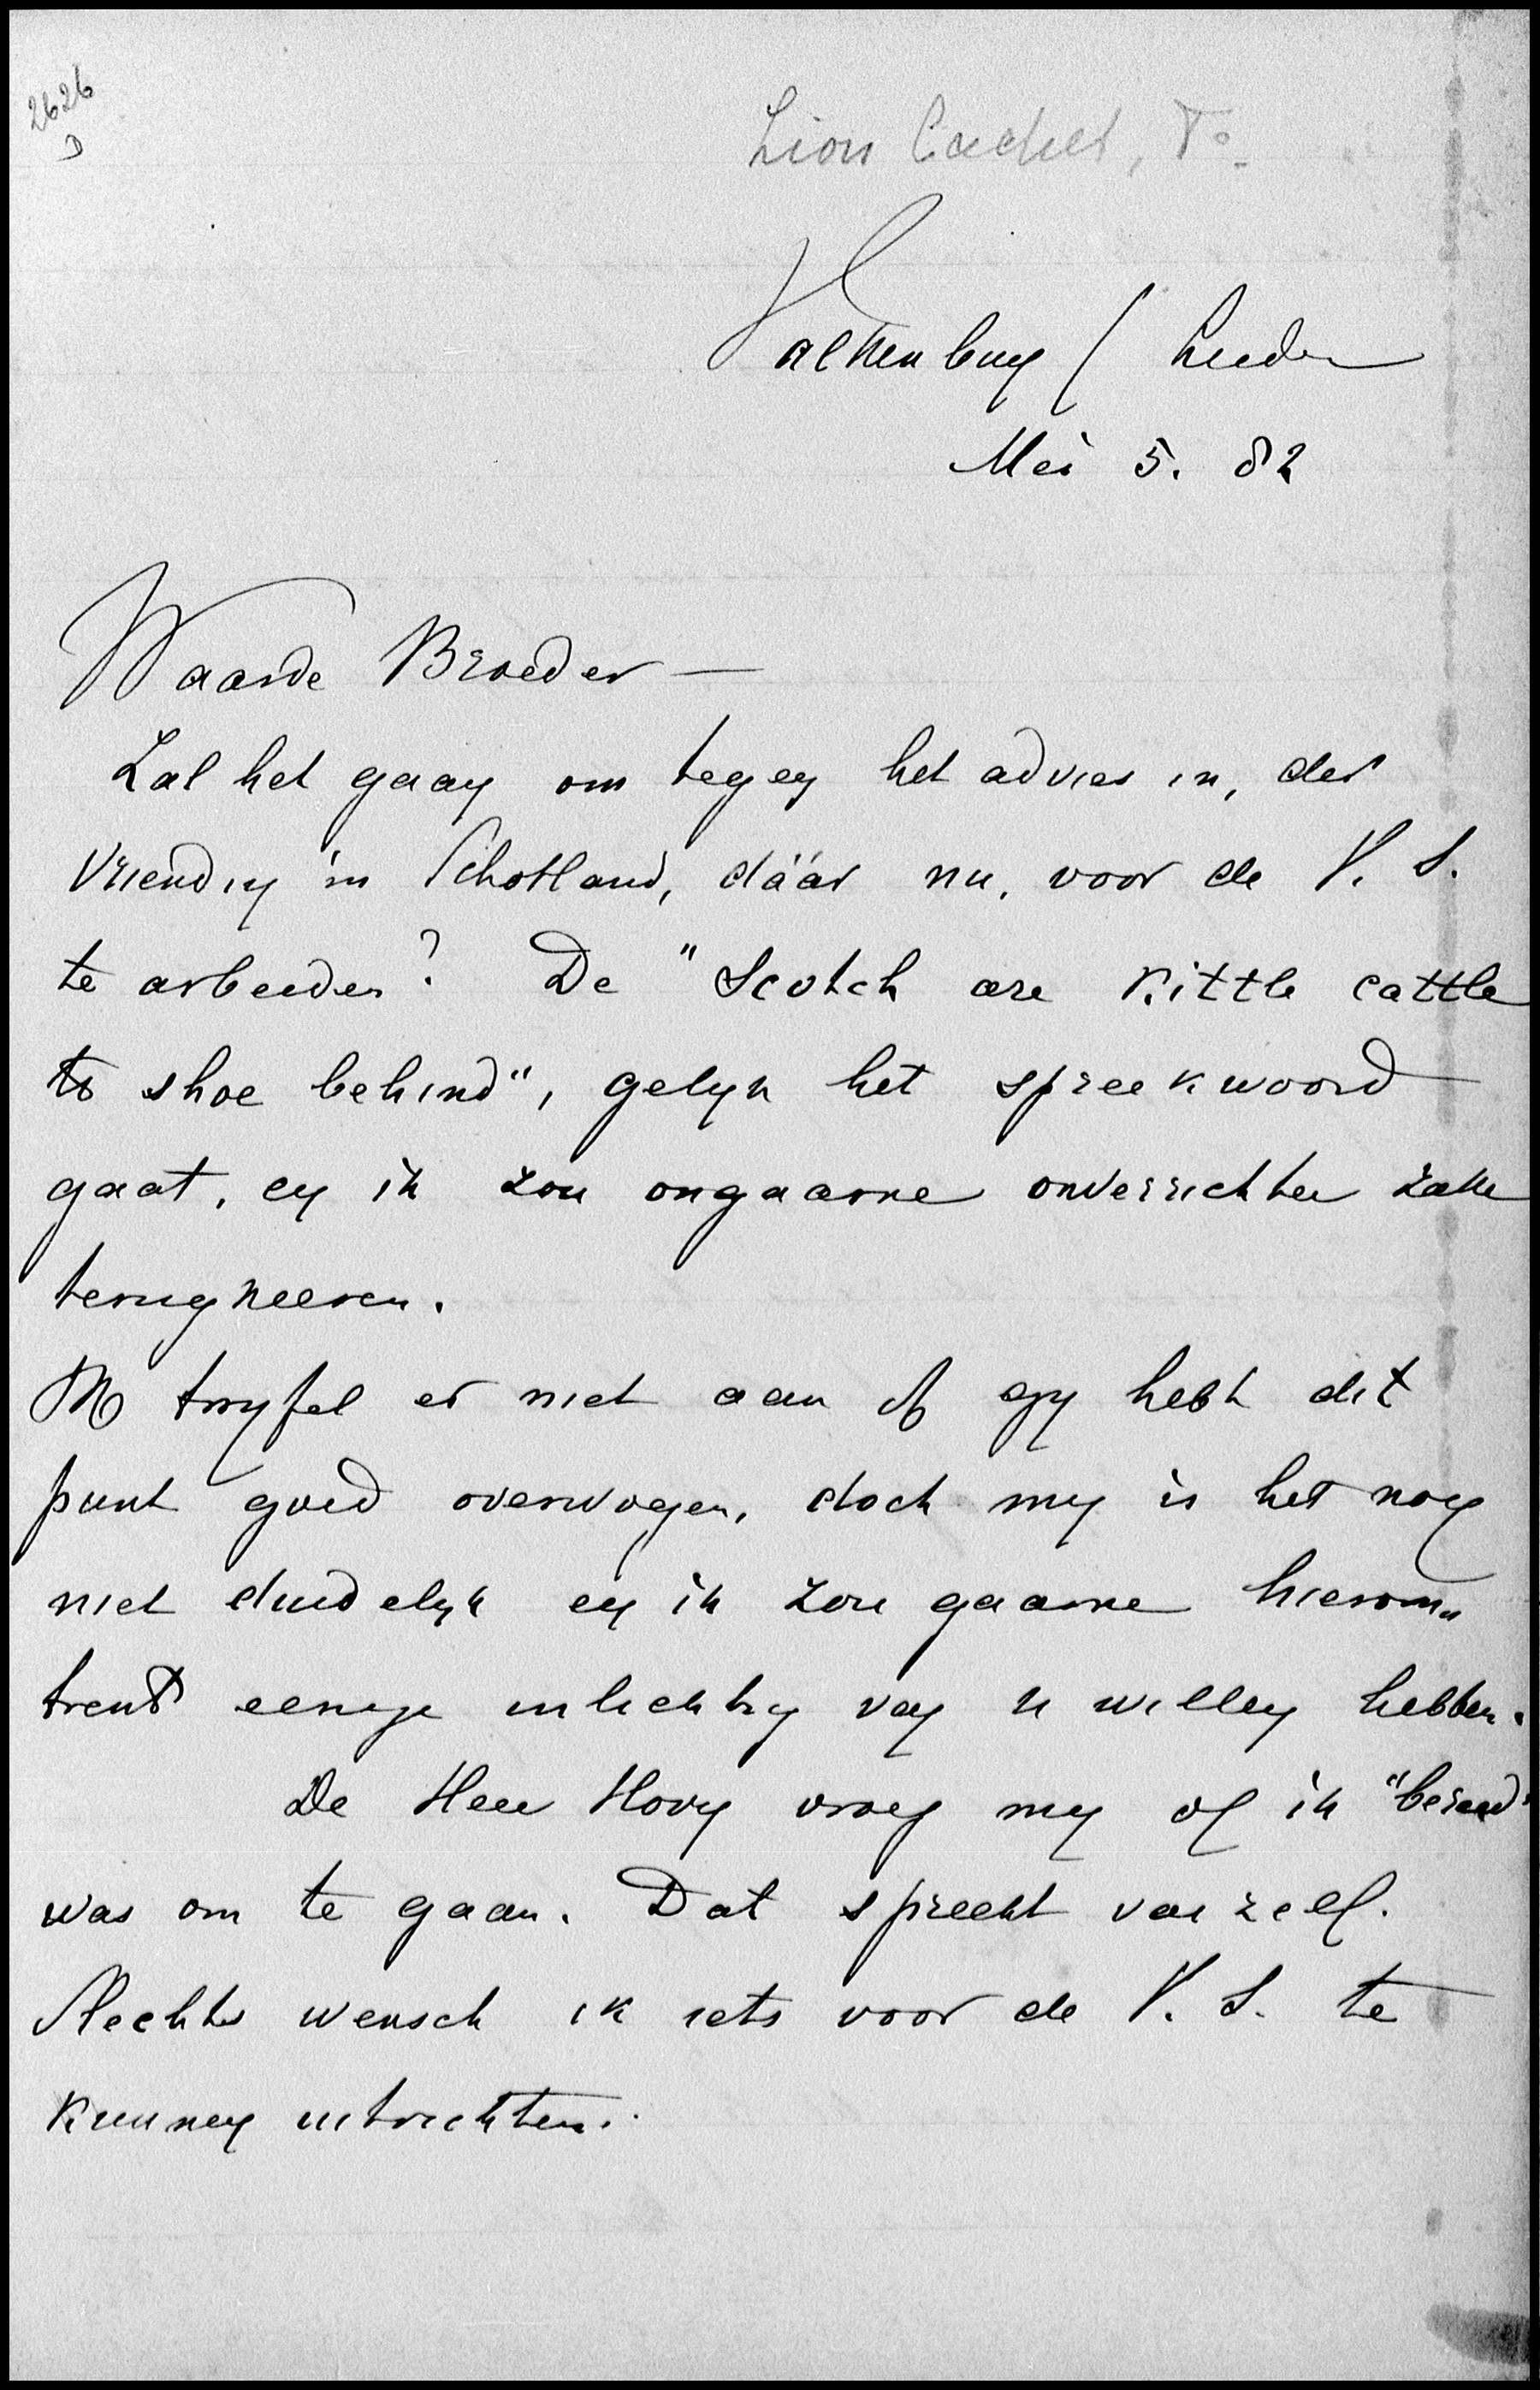 2626
D
Lion Cachet, F.
Valkenburg / Leiden
Mei 5. 82
Waarde Broeder —
Zal het gaan om tegen het advies in, der
vrienden in Schotland, dáár nu, voor de V. S.
te arbeiden? De "Scotch are kittle cattle
to shoe behind", gelyk het spreekwoord
gaat, en ik zou ongaarne onverrichter zake
terugkeeren.
Ik twyfel er niet aan of gy hebt dit
punt goed overwogen, doch my is het nog
niet duidelyk en ik zou gaarne hierom„
trent eenige inlichting van u willen hebben.
De Heer Hovy vroeg my of ik "bereid"
was om te gaan. Dat spreekt van zelf.
Slechts wensch ik iets voor de V. S. te
kunnen uitrichten.